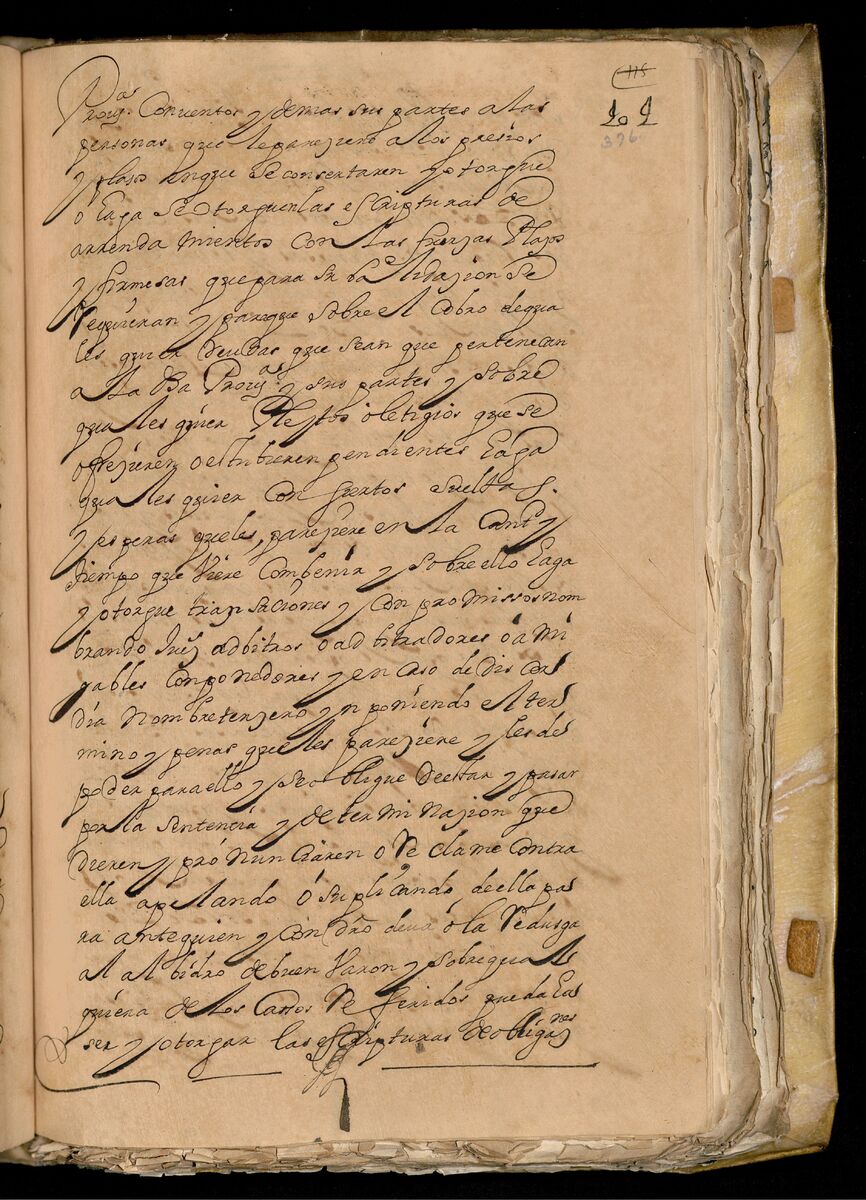 115
101
376
Prouᵃˢ. Conuentos y demas sus partes a las
personas que le parejiere a los presios
y plasos en que se consertaren y otorgue
o haga se otorguen las escripturas de
arrenda mientos con las fuerzas
y firmesas que para su balidajion se
requieran y para que sobre el cobro de qua
les quier deudas que sean que pertenecan
a la dha Prouᵃ y sus partes y sobre
quales quier Pleytos o letigios que se
ofrejieren o estubieren pendientes haga
quales quier consiertos sueltas
y esperas que les parejiere en la Cantᵈ y
tiempo que Viere Combenir y sobre ello haga
y otorgue transaciones y con pro missos nom
brando Juez adbitros o adbitradores o a mi
gables Componedores y en caso de discor
dia nombre terjero y n poniendo el ter
mino y penas que les parejiere y les de
poder para ello y se obligue de estar y pasar
por la sentencia y deter mi najion que
dieren y pro nun ciaren o Re clame contra
ella apelando o suplicando de ella pa
ra ante quien y con dro deua o la Redusga
al albidro de buen Varon y sobre quales
quiera de los Cassos Re feridos pueda ha
ser y otorgar las escripturas de obligⁿᵉˢ